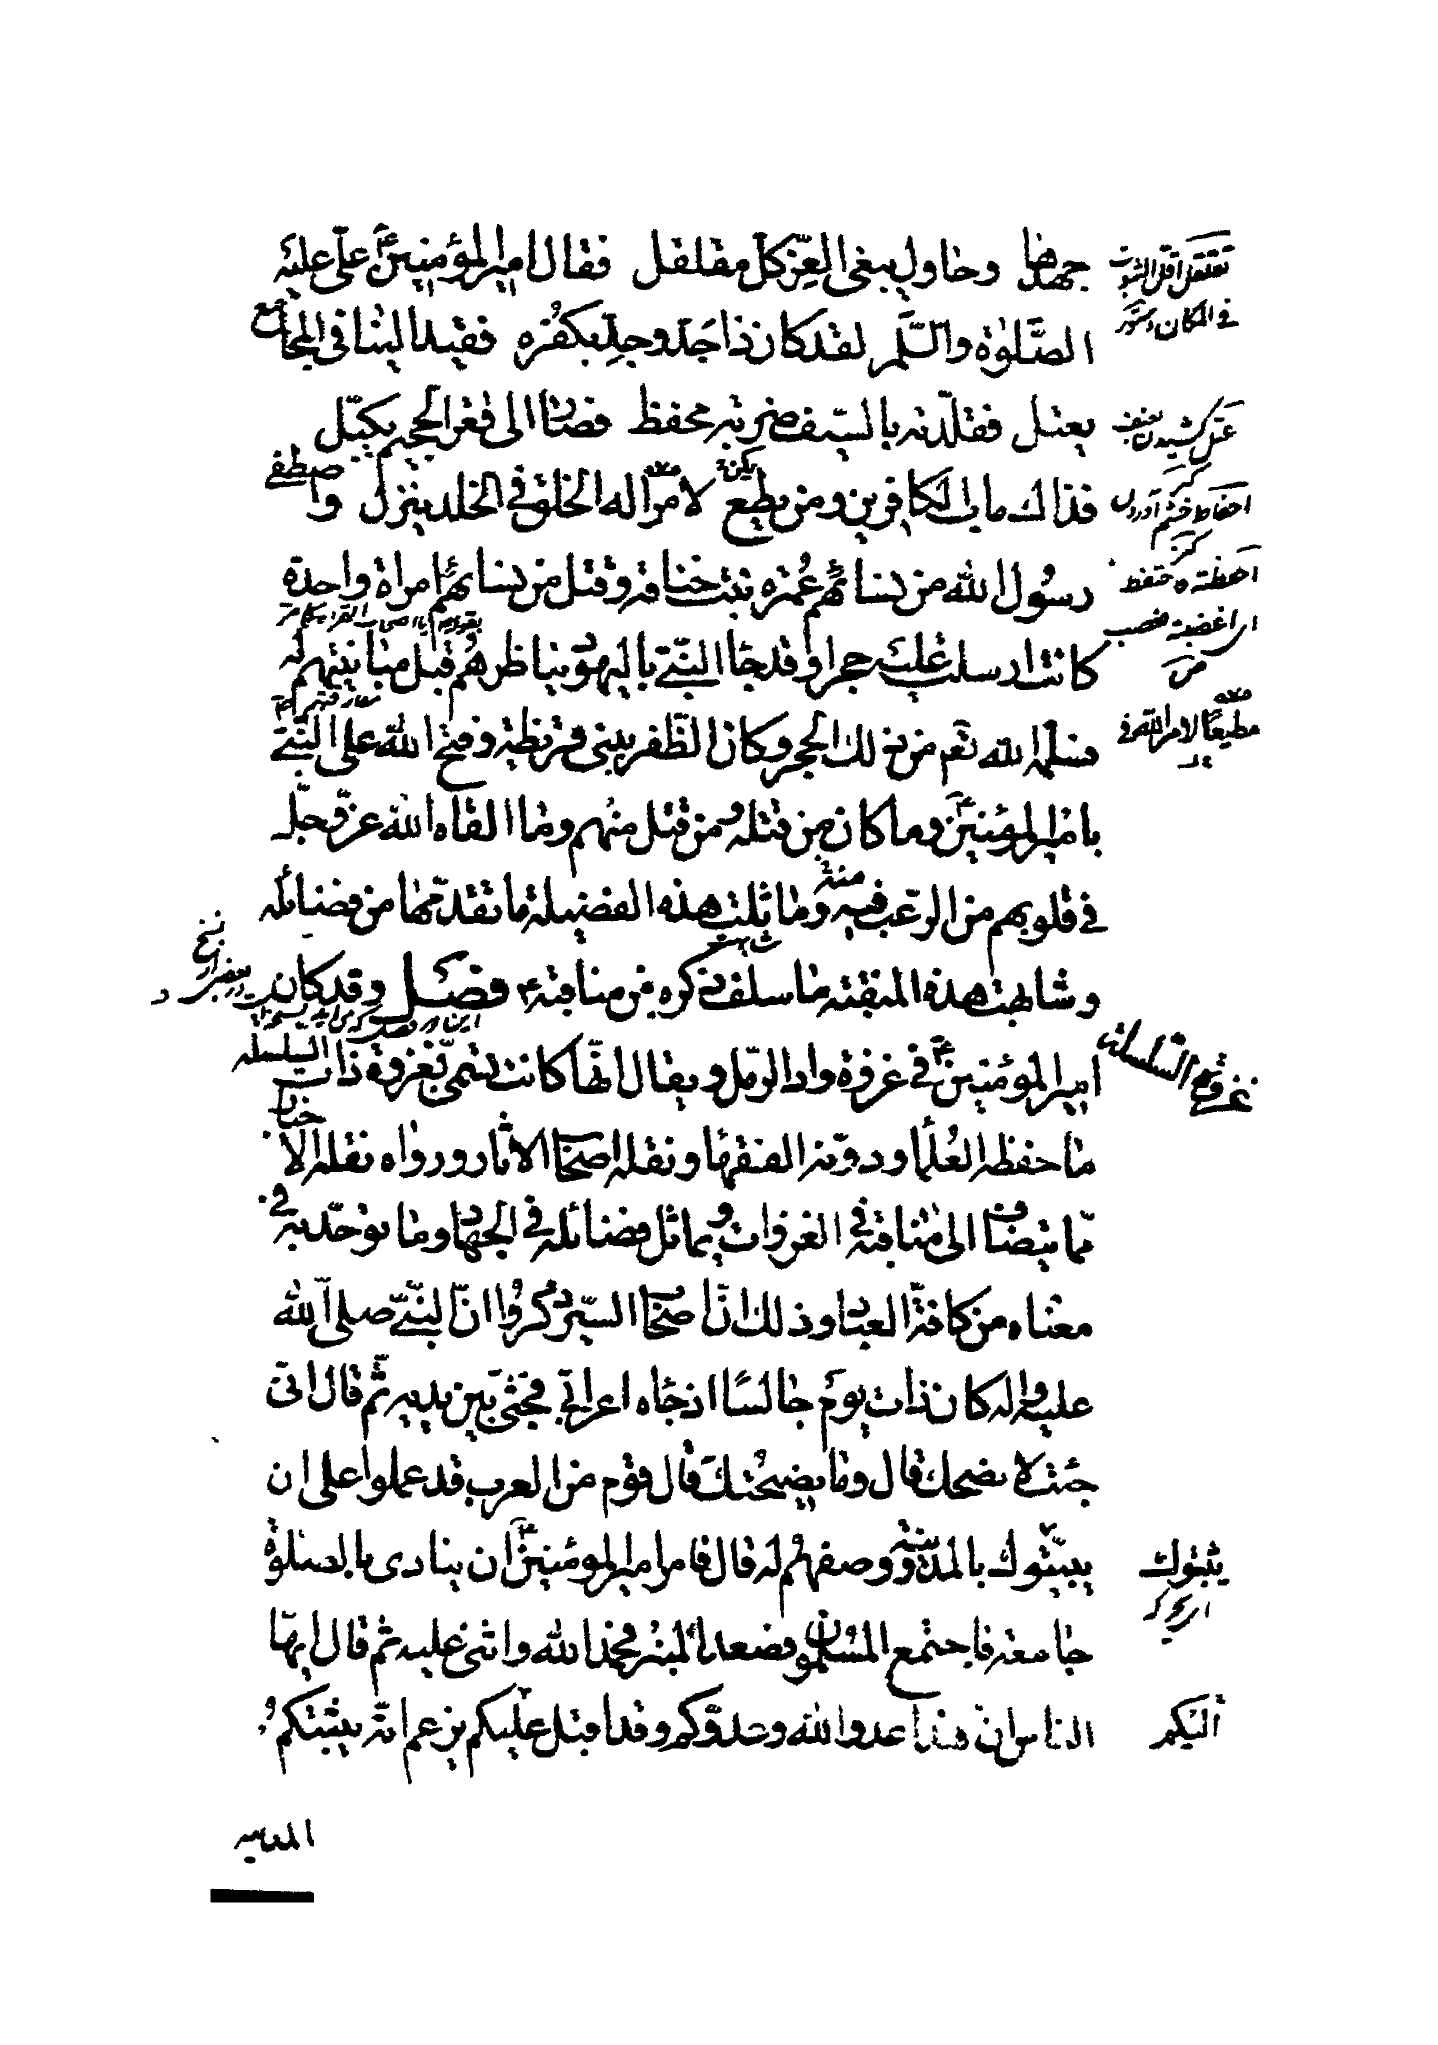 جهدها وحاول يبغي العزّ كلّ مقلقل فقال امير المؤمنين علي عليه
الصّلوٰة والسّلم لقد كان ذا جدّ وجدّ بكفره فقيد الينا في المجامع
يعتل فقلّدته بالسّيف ضربة محفظ فصار الى قعر الجحيم يكبّل
فذاك مآب الكافرين ومن يطع لامر اله الخلق في الخلد ينزل واصطفى
رسول الله من نسائهم عمرة بنت خنافه وقتل من نسائهم امراة واحدة
كانت ارسلت عليه حجرا وقد جاء النّبيّ باليهود يناظرهم قبل مباينتهم له
فسلّمه الله تعم من ذلك الحجر وكان الظّفر ببني قريظة وفتح الله على النّبيّ
بامير المؤمنين وما كان من قتله ومن قتل منهم وما القاه الله عزّ وجلّ
في قلوبهم من الرّعب منه وماثلت هذه الفضيلة ما تقدّمها من فضائله
وشابهت هذه المنقبة ما سلف ذكره من مناقبه فصل وقد كان
امير المؤمنين في غزوة واد الرّمل ويقال انّها كانت تسمّى بغزوة ذات السّلسله
ما حفظه العلماء ودوّنه الفقهاء ونقله اصحاب الاثار ورواه نقله الاخبار
ممّا ينضاف الى مناقبه في الغزوات ويماثل فضائله في الجهاد وما توحّد به في
معناه من كافّة العباد وذلك انّ اصحاب السّير ذكروا انّ النّبيّ صلى الله
عليه واله كان ذات يوم جالسًا اذ جاءه اعرابي فجثى بين يديه ثمّ قال انّي
جئتك لانصحك قال وما نصيحتك قال قوم من العرب قد عملوا على ان
يبيّتوك بالمدينة ووصفهم له قال فامر امير المؤمنين ان ينادي بالصلوٰة
جامعة فاجتمع المسلمون فصعد المنبر فحمد الله واثنى عليه ثم قال ايّها
الناس انّ هذا عدوّ الله وعدوّكم وقد اقبل عليكم يزعم انّه يبيّتكم
تقلقل اقل الثبوت
في المكان
عتل كشيدن بعنف
احفاظ خشم آوردن
احفظته فاحتفظ
اى اغضبته فغضب
مطيعًا لامر الله
غزوة السّلسله
يثبتوك
اليكم
المدينة